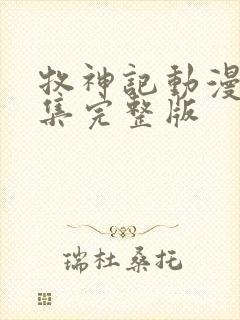 牧神記動漫
集完整版
瑞杜桑托